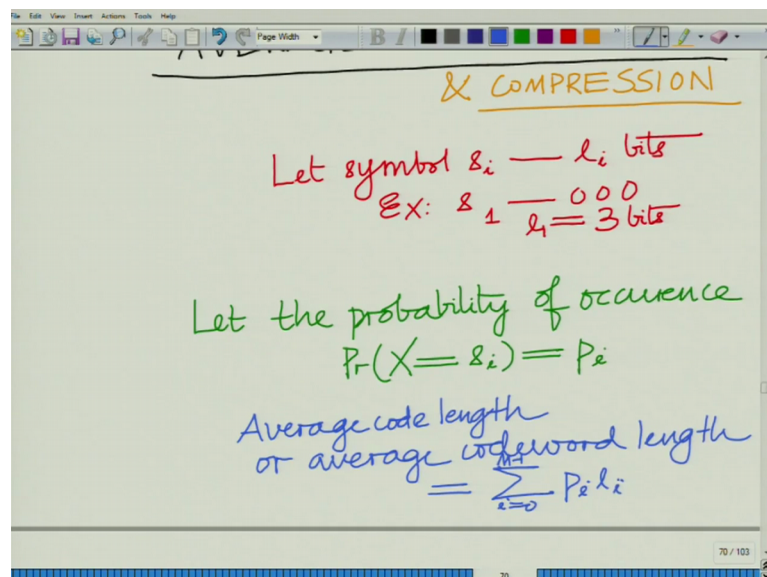 File Edit View Insert Actions Tools Help
Page Width
B I
& COMPRESSION
Let symbol s_i — l_i bits
Ex: s_1 — 000
l_1 = 3 bits
Let the probability of occurence
Pr(X = s_i) = p_i
Average code length
or average codeword length
= \sum_{i=0}^{M-1} p_i l_i
70 / 103
70